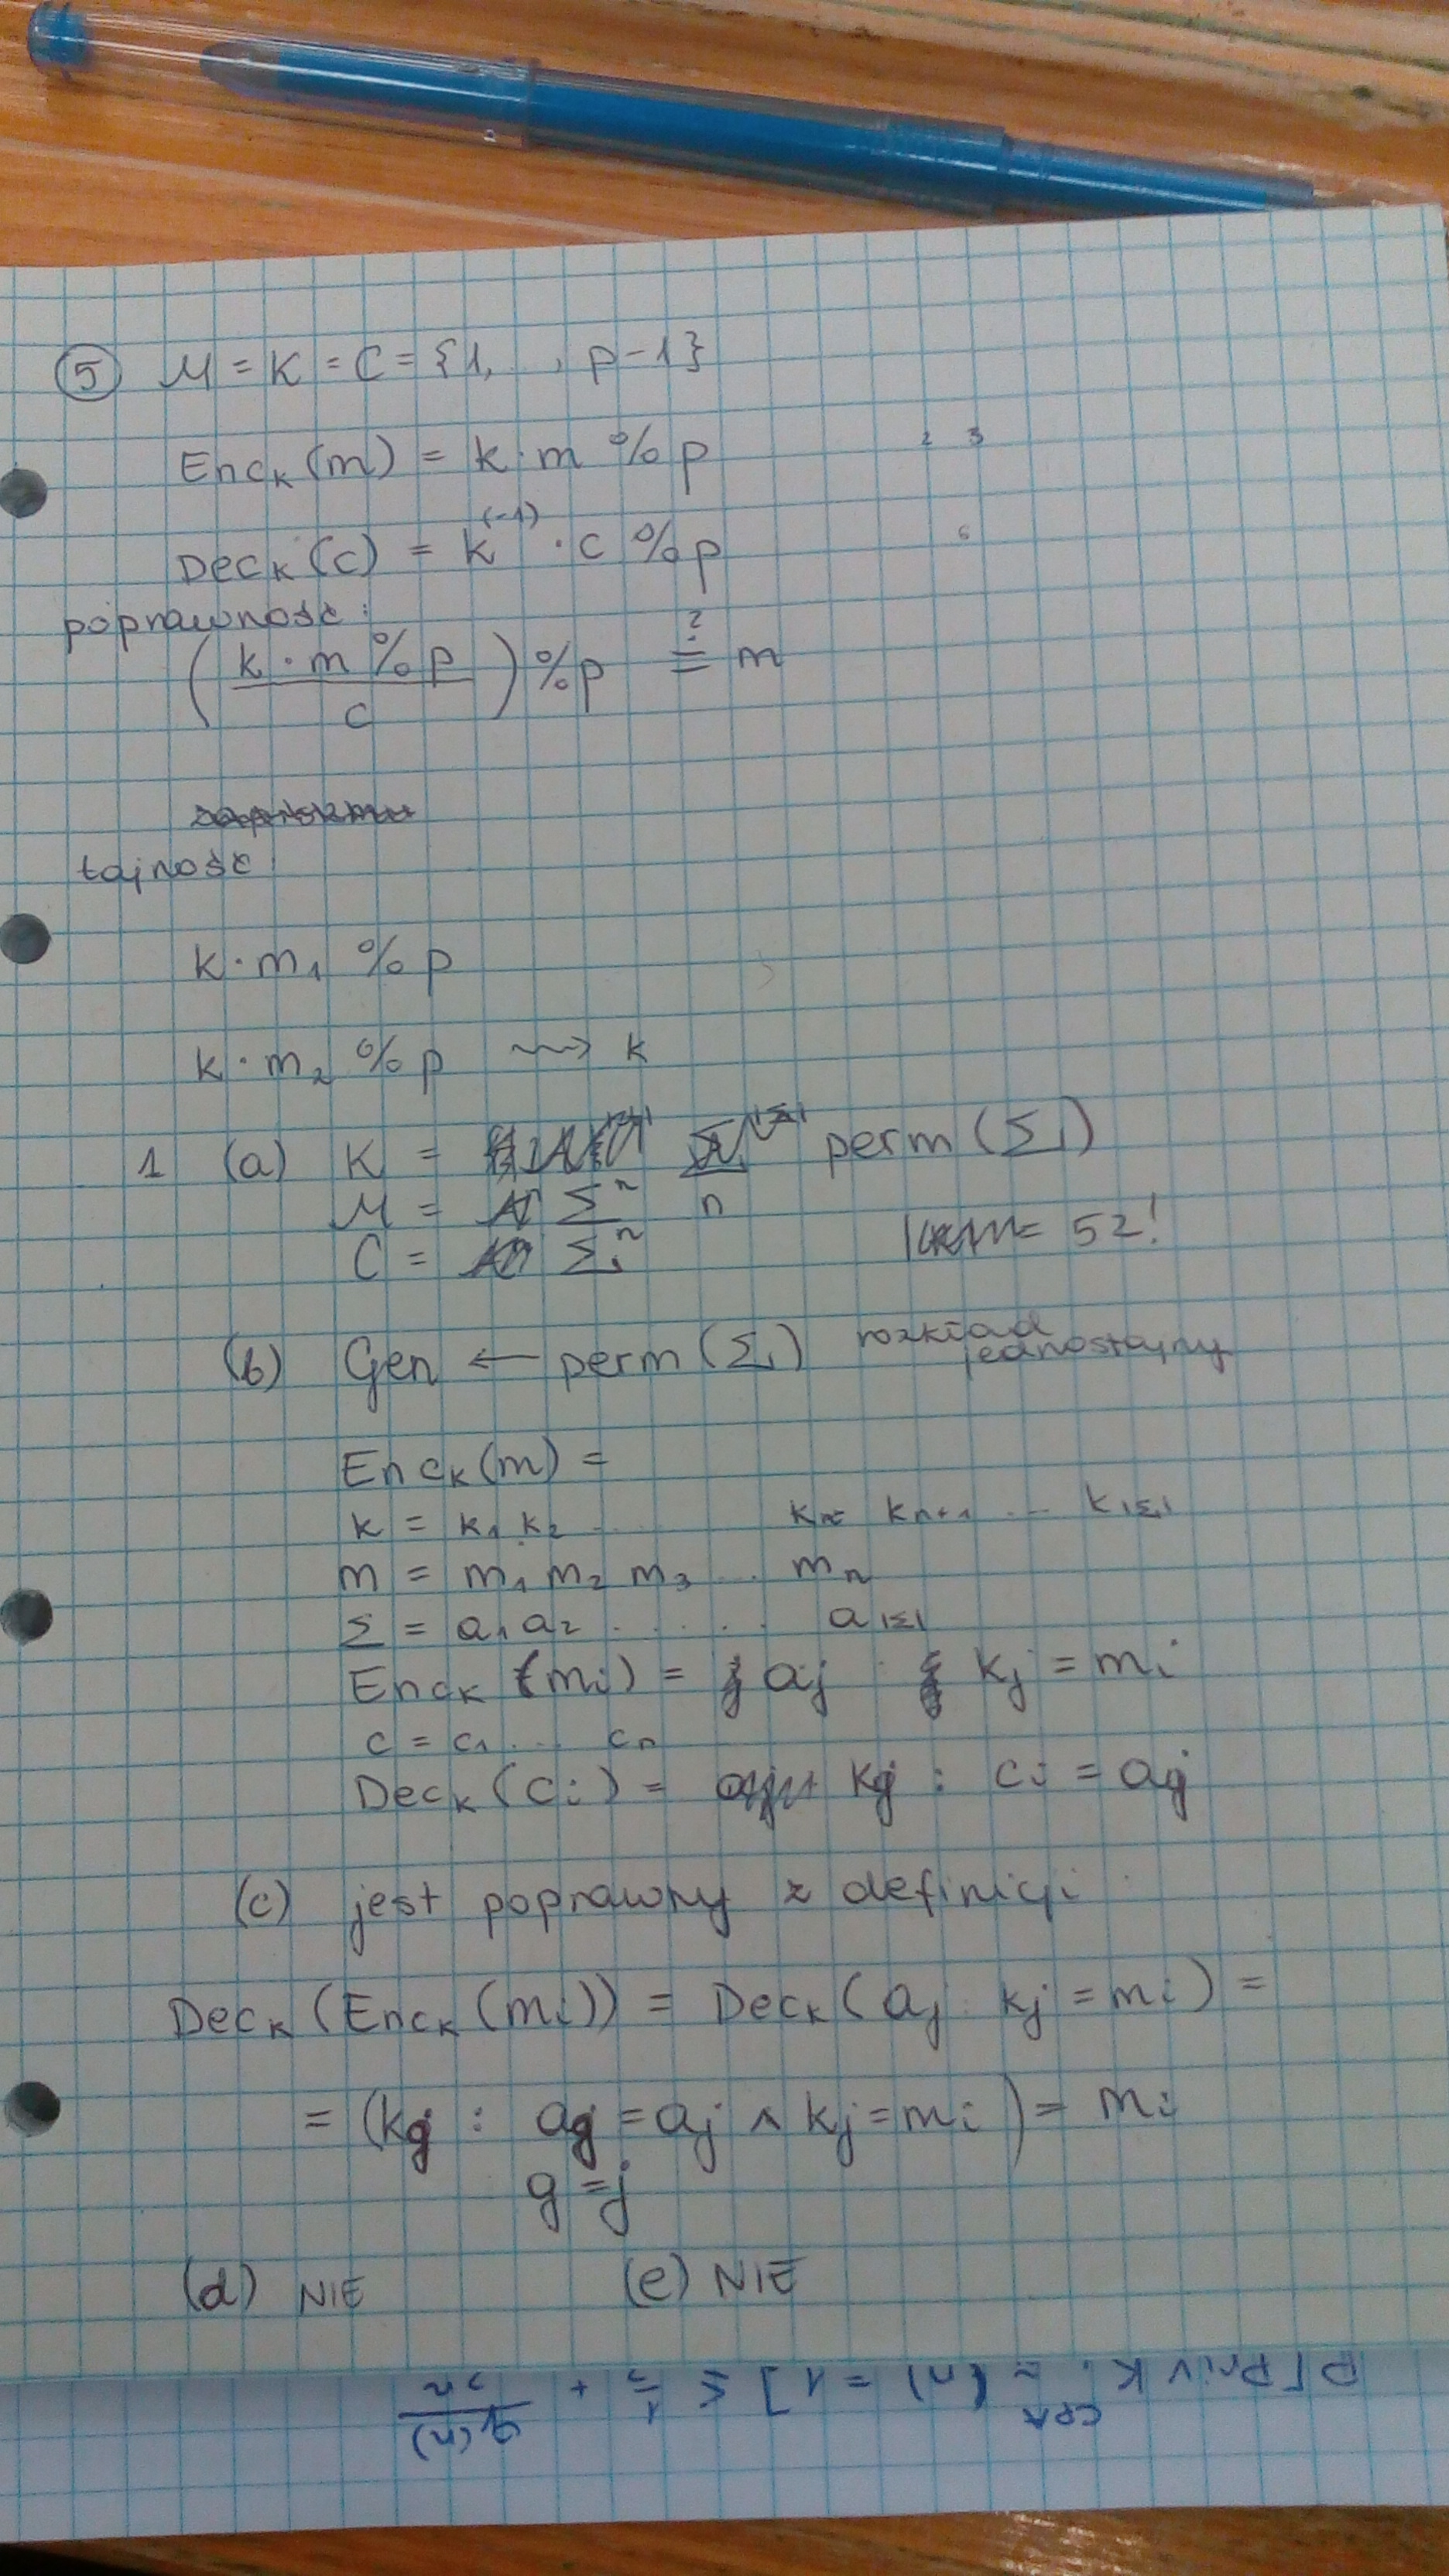 5 M = K = C = {1, .. , p-1}
Enc_k(m) = k·m % p
2 3
Dec_k(c) = k^(-1) · c % p
6
poprawność:
(k·m % p / c) % p ≟ m
tajność:
k·m₁ % p
k·m₂ % p ⇝ k
1 (a) K = perm(Σ)
M = Σⁿ n
C = Σⁿ
= 52!
(b) Gen ← perm(Σ) rozkład
jednostajny
Enc_k(m) =
k = k₁ k₂ .... k_n k_{n+1} ... k_{|Σ|}
m = m₁ m₂ m₃ ... m_n
Σ = a₁ a₂ ...... a_{|Σ|}
Enc_k(m_i) = a_j : k_j = m_i
c = c₁ ... c_n
Dec_k(c_i) = k_g : c_i = a_g
(c) jest poprawny z definicji
Dec_k(Enc_k(m_i)) = Dec_k(a_j : k_j = m_i) =
= (k_g : a_g = a_j ∧ k_j = m_i) = m_i
g = j
(d) NIE (e) NIE